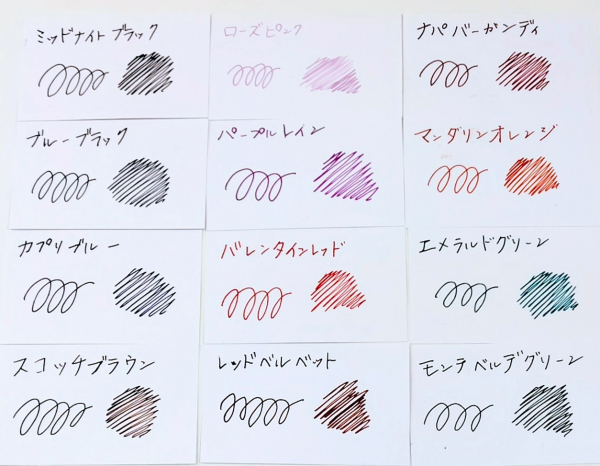 ミッドナイトブラック
ローズピンク
ナパバーガンディ
ブルーブラック
パープルレイン
マンダリンオレンジ
カプリブルー
バレンタインレッド
エメラルドグリーン
スコッチブラウン
レッドベルベット
モンテベルデグリーン